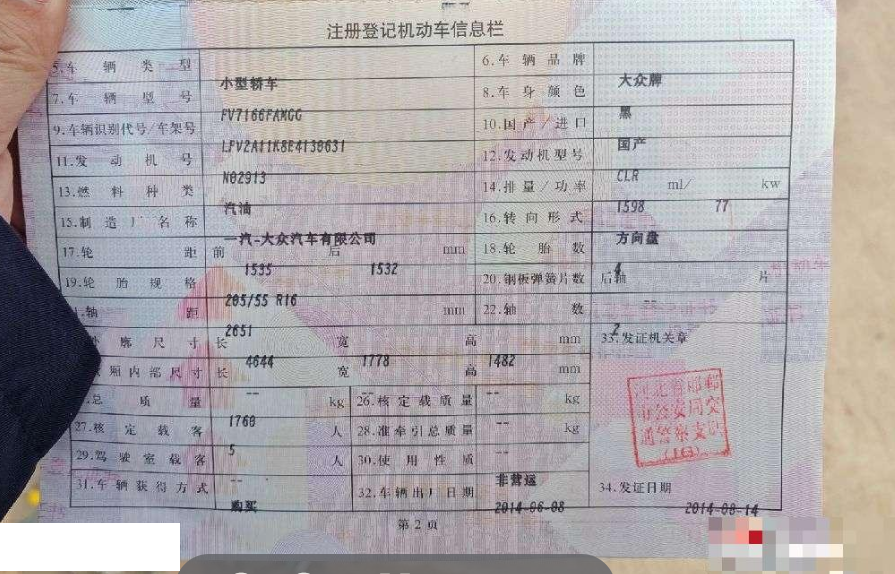 注册登记机动车信息栏
5.车辆类型 小型轿车 6.车辆品牌 大众牌
7.车辆型号 FV7166FAMGG 8.车身颜色 黑
9.车辆识别代号/车架号 LFV2A11K8E4138631 10.国产/进口 国产
11.发动机号 N02913 12.发动机型号 CLR
13.燃料种类 汽油 14.排量/功率 1598 ml/ 77 kw
15.制造厂名称 一汽-大众汽车有限公司 16.转向形式 方向盘
17.轮距 前 1535 后 1532 mm 18.轮胎数 4
19.轮胎规格 205/55 R16 20.钢板弹簧片数 后轴 -- 片
轴距 2651 mm 22.轴数 2
廓尺寸 长 4644 宽 1778 高 1482 mm 33.发证机关章
厢内部尺寸 长 -- 宽 -- 高 -- mm
总质量 1760 kg 26.核定载质量 -- kg
27.核定载客 5 人 28.准牵引总质量 -- kg
29.驾驶室载客 -- 人 30.使用性质 非营运
31.车辆获得方式 购买 32.车辆出厂日期 2014-06-08 34.发证日期 2014-08-14
河北省邯郸
市公安局交
通警察支队
(163)
第2页